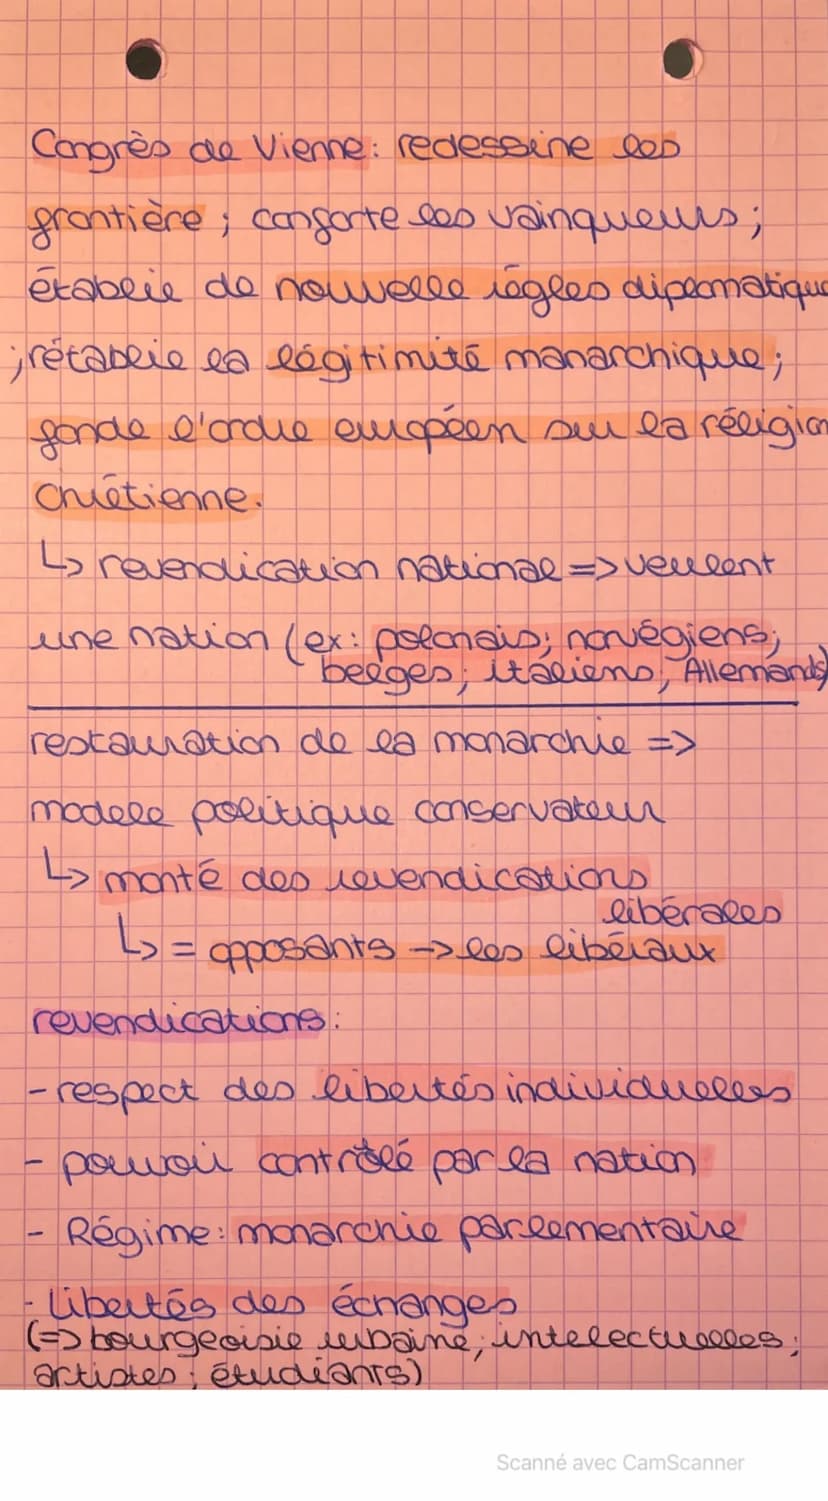 Congrès de Vienne: redessine les
frontière ; conforte les vainqueurs ;
établie de nouvelle règles diplomatique
; rétablie la légitimité monarchique ;
fonde l'ordre européen sur la réligion
Chrétienne.
↳ revendication nationale => veulent
une nation (ex: polonais; norvégiens;
belges; italiens, Allemands)
restauration de la monarchie =>
modele politique conservateur
↳ monté des revendications
libérales
↳ = opposants → les libéraux
revendications:
- respect des libertés individuelles
- pouvoir contrôlé par la nation
- Régime: monarchie parlementaire
- Libertés des échanges
(=> bourgeoisie urbaine; intelectuelles;
artistes; étudiants)
Scanné avec CamScanner